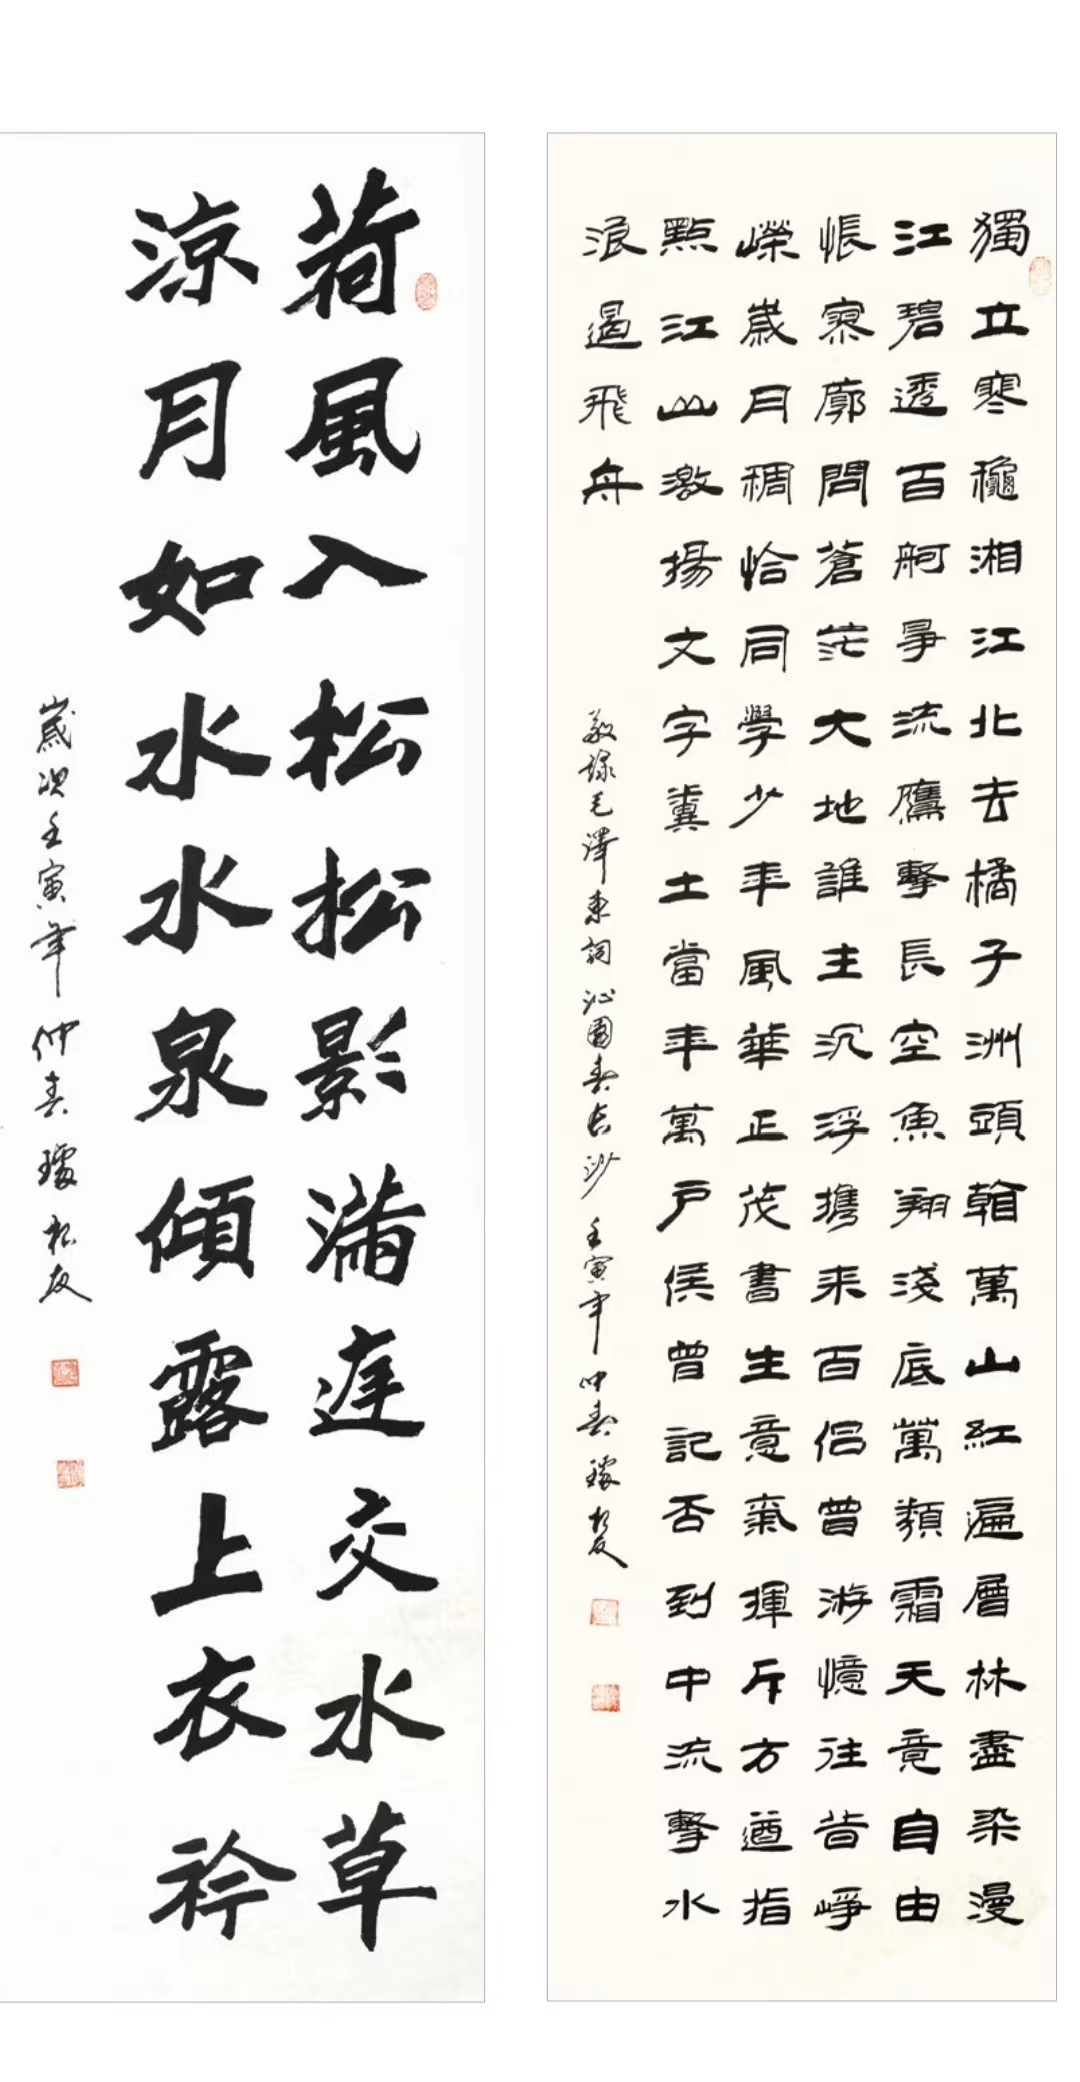 獨立寒龝湘江北去橘子洲頭看萬山紅遍層林盡染漫
江碧透百舸爭流鷹擊長空魚翔淺底萬類霜天竟自由
悵寥廓問蒼茫大地誰主沉浮攜來百侶曾游憶往昔崢
嶸歲月稠恰同學少年風華正茂書生意氣揮斥方遒指
點江山激揚文字糞土當年萬戶侯曾記否到中流擊水
浪遏飛舟
敬錄毛澤東詞沁園春長沙 壬寅年仲春 璩松友
荷風入松松影滿庭交水草
涼月如水水泉傾露上衣衿
歲次壬寅年仲春璩松友